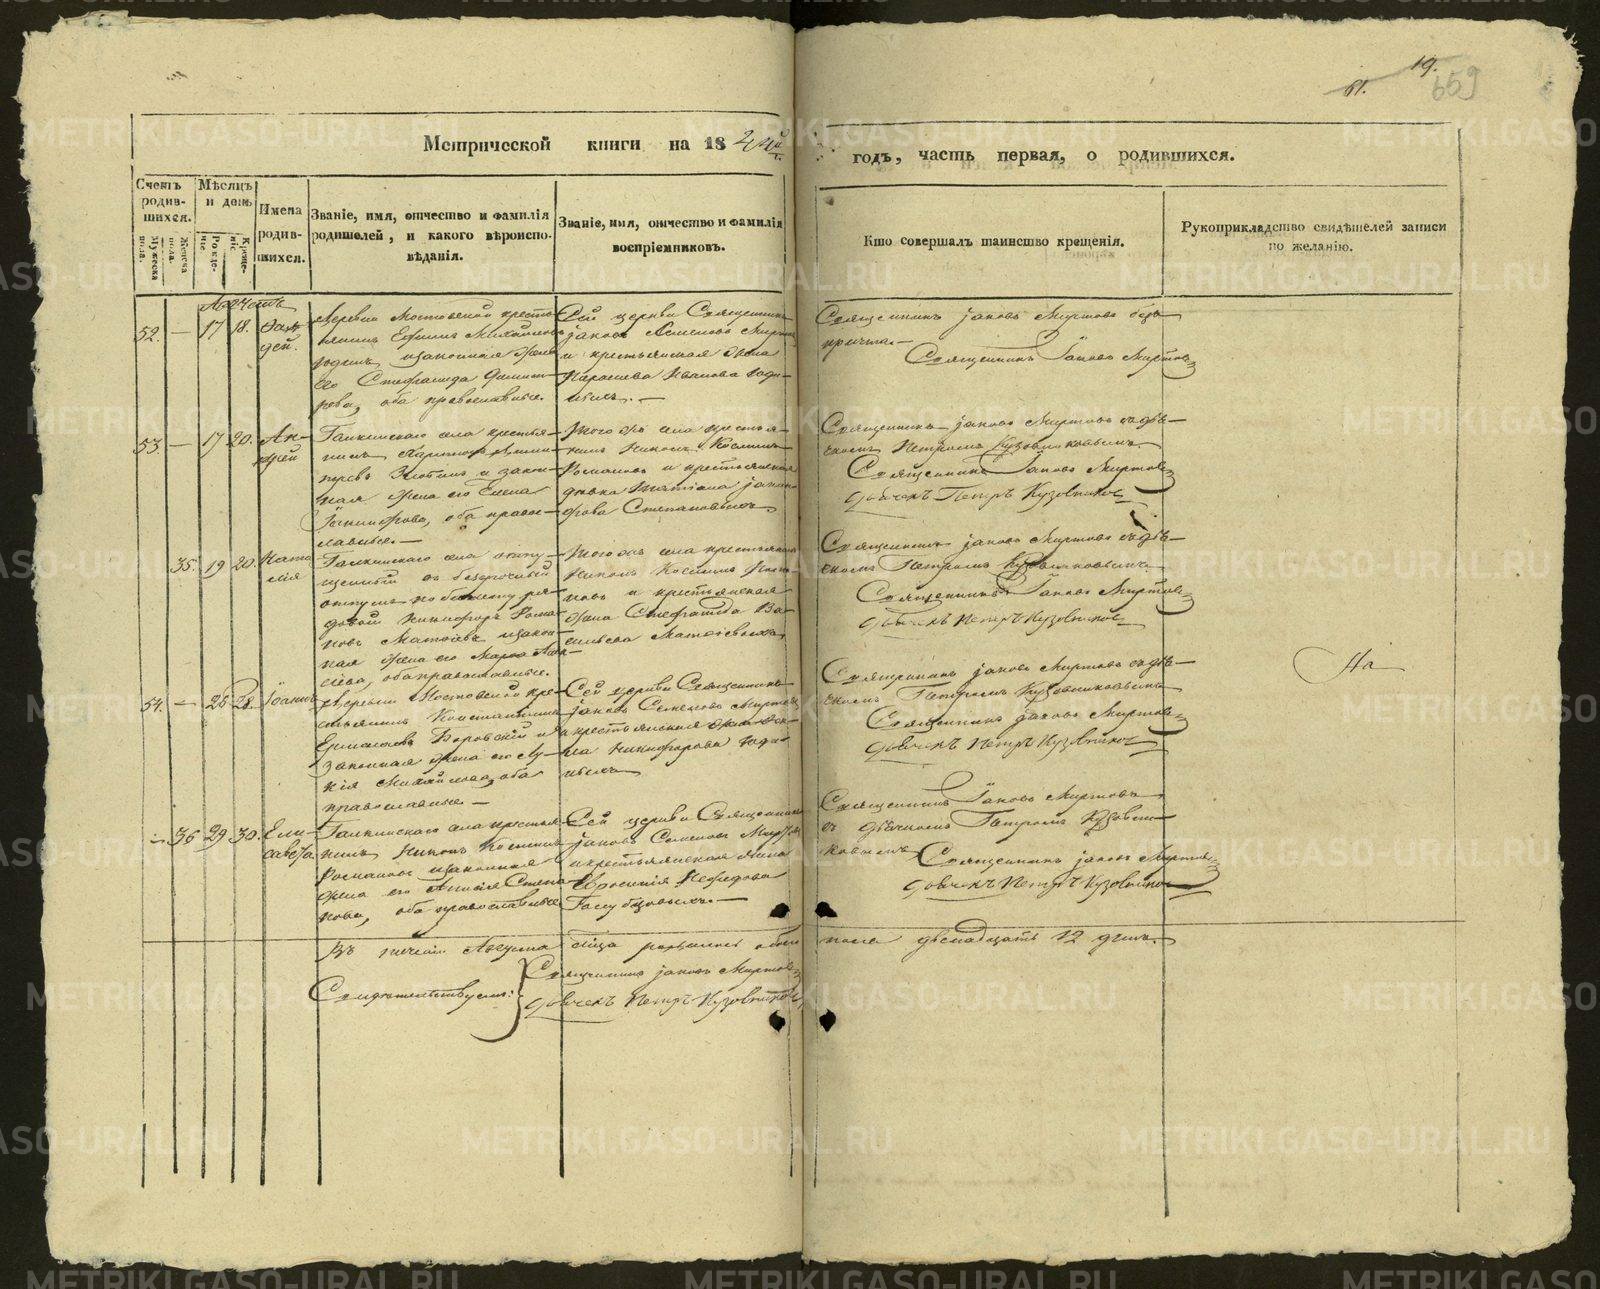 19.
61.
659
Метрической книги на 1844й
годъ, часть первая, о родившихся.
Счетъ родив-
шихся.
Мужеска пола.
Женска пола.
Мѣсяцъ
и день
Рожде-
нія
Креще-
нія
Имена
родив-
шихся.
Званіе, имя, отчество и фамилія
родителей, и какого вѣроиспо-
вѣданія.
Званіе, имя, отчество и фамилія
воспріемниковъ.
Кто совершалъ таинство крещенія.
Рукоприкладство свидѣтелей записи
по желанію.
Августъ
52. — 17 18. Фад-
дей.
Деревни Мостовской кресть-
янинъ Ефимъ Михайловъ
и законная жена
его Стефанида
оба православные.
Сей церкви Священникъ
Яковъ Семеновъ Миртовъ
и крестьянская жена
Параскева Иванова
Священникъ Яковъ Миртовъ безъ
причта. —
Священникъ Іаковъ Миртовъ
53. — 17 20. Ан-
дрей
Галкинскаго села крестья-
нинъ
и закон-
ная жена его Елена
Никифорова, оба право-
славные. —
Того жъ села крестья-
нинъ Никонъ Костинъ
Романовъ и крестьянская
дѣвка Татіана
Степановыхъ
Священникъ Яковъ Миртовъ съ дья-
чкомъ Петромъ Кузовниковымъ
Священникъ Іаковъ Миртовъ
Дьячекъ Петръ Кузовников
35. 19 20. Ната-
лія
Галкинскаго села отпу-
щенный въ безсрочный
отпускъ по билету ря-
довой Никифоръ Рома-
новъ Матвѣевъ и закон-
ная жена его Марѳа
оба православные.
Того жъ села крестьянинъ
Никонъ Костинъ Рома-
новъ и крестьянская
жена Стефанида Ва-
сильева Матвѣевыхъ
Священникъ Яковъ Миртовъ съ дья-
чкомъ Петромъ Кузовниковымъ
Священникъ Іаковъ Миртовъ
Дьячекъ Петръ Кузовников
На
54. — 26 28. Іоаннъ
Деревни Мостовской кре-
стьянинъ Константинъ
Ермолаевъ Боровскій и
законная жена его Лу-
кія Михайлова, оба
православные. —
Сей церкви Священникъ
Яковъ Семеновъ Миртовъ
и крестьянская жена
Никифорова
Священникъ Яковъ Миртовъ съ дья-
чкомъ Петромъ Кузовниковымъ
Священникъ Яковъ Миртовъ
Дьячекъ Петръ Кузовников
— 36 29 30. Ели-
савета.
Галкинскаго села крестья-
нинъ Никонъ Костинъ
Романовъ и законная
жена его Анисія Степа-
нова, оба православные
Сей церкви Священникъ
Яковъ Семеновъ Миртовъ
и крестьянская жена
Евросинія Нефедова
Голубцовыхъ. —
Священникъ Іаковъ Миртовъ
съ дьячкомъ Петромъ Кузовни-
ковымъ
Священникъ Яковъ Миртовъ
Дьячекъ Петръ Кузовников
Въ теченіи Августа м͠ца родилось обоего пола двенадцать 12 душъ.
Свидѣтельствуемъ:
Священникъ Яковъ Миртовъ
Дьячекъ Петръ Кузовников
METRIKI.GASO-URAL.RU